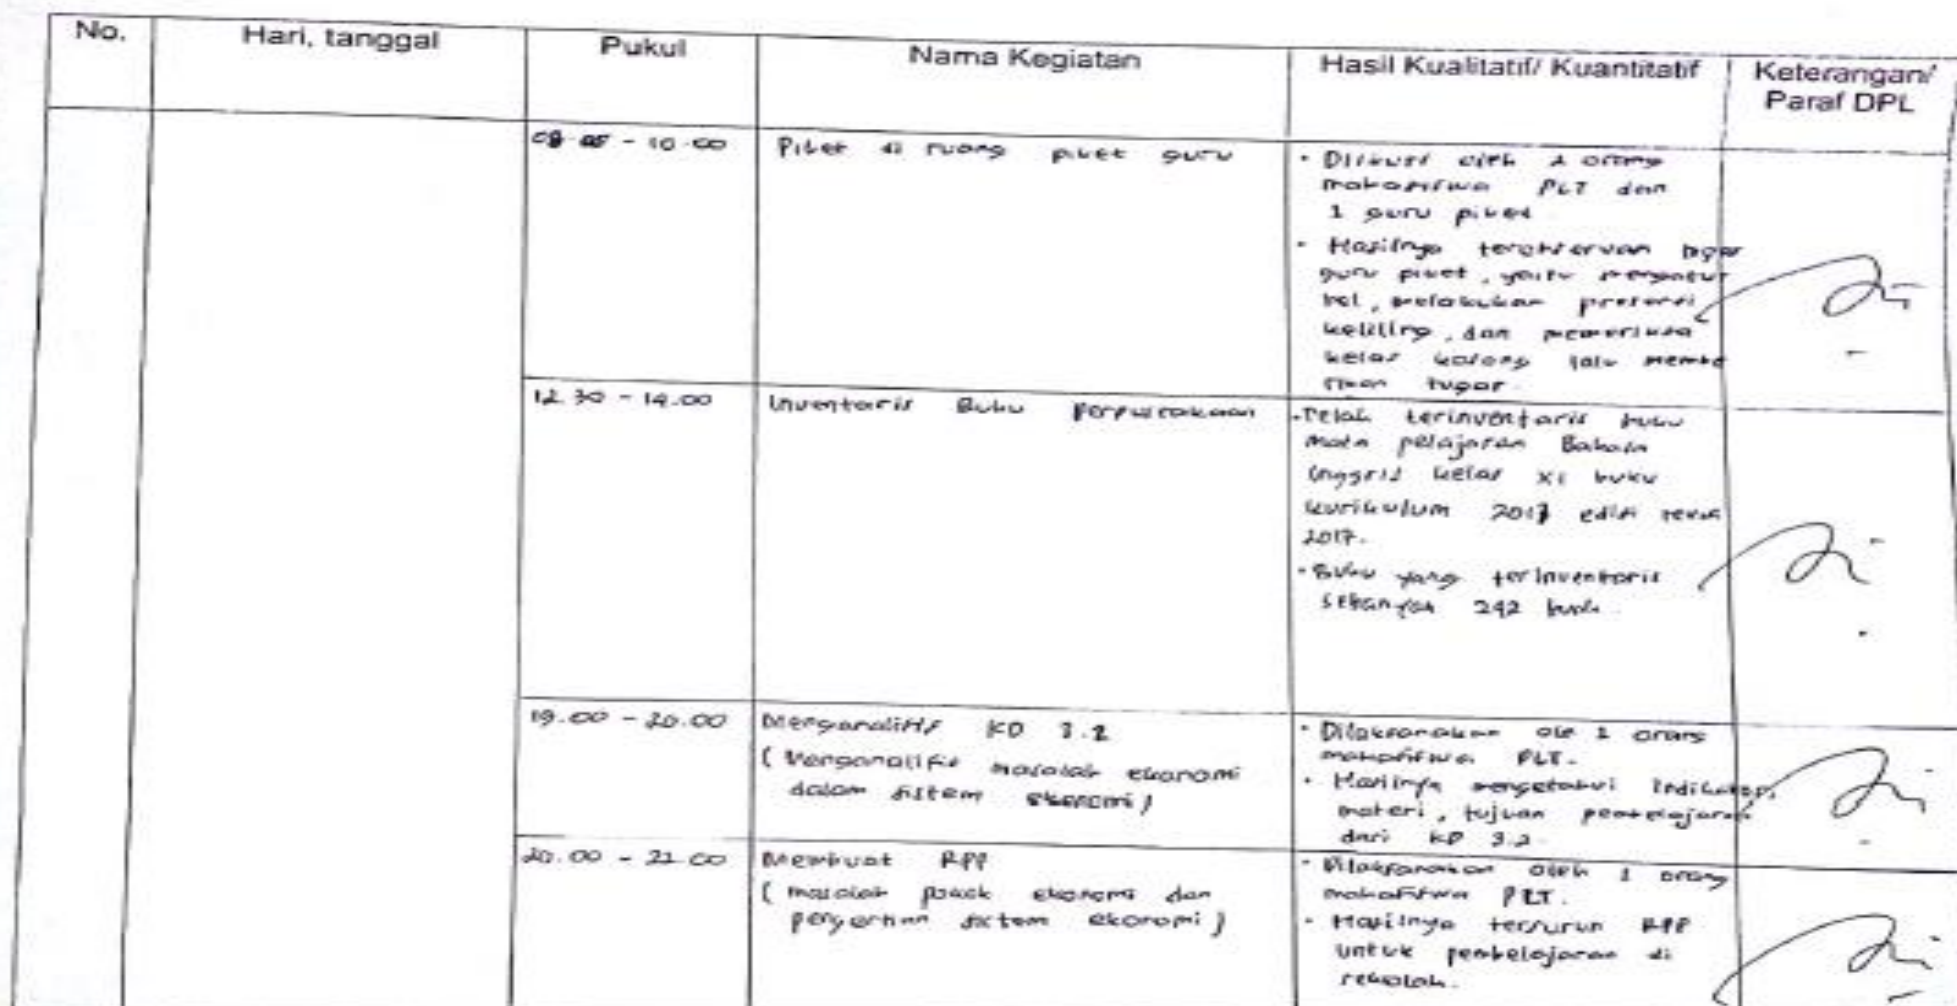 No.
Hari, tanggal
Pukul
Nama Kegiatan
Hasil Kualitatif/ Kuantitatif
Keterangan/
Paraf DPL
- 10.00
Piket di ruang piket guru
• Diikuti oleh 2 orang
mahasiswa PLT dan
1 guru piket
• Hasilnya terobservasi tugas
guru piket, yaitu mengatur
bel, melakukan presensi
keliling, dan memeriksa
kelas kosong lalu membe
rikan tugas.
12.30 - 14.00
Inventaris Buku Perpustakaan
• Telah terinventaris buku
mata pelajaran Bahasa
Inggris kelas XI buku
kurikulum edisi revisi
2017.
• Buku yang terinventaris
sebanyak 242 buku.
19.00 - 20.00
Menganalisis KD 3.2
( Menganalisis masalah ekonomi
dalam sistem ekonomi )
• Dilaksanakan ole 1 orang
mahasiswa PLT.
• Hasilnya mengetahui indikator,
materi, tujuan pembelajaran
dari KD 3.2.
20.00 - 21.00
Membuat RPP
( masalah pokok ekonomi dan
pengertian sistem ekonomi )
• Dilaksanakan oleh 1 orang
mahasiswa PLT.
• Hasilnya tersusun RPP
untuk pembelajaran di
sekolah.